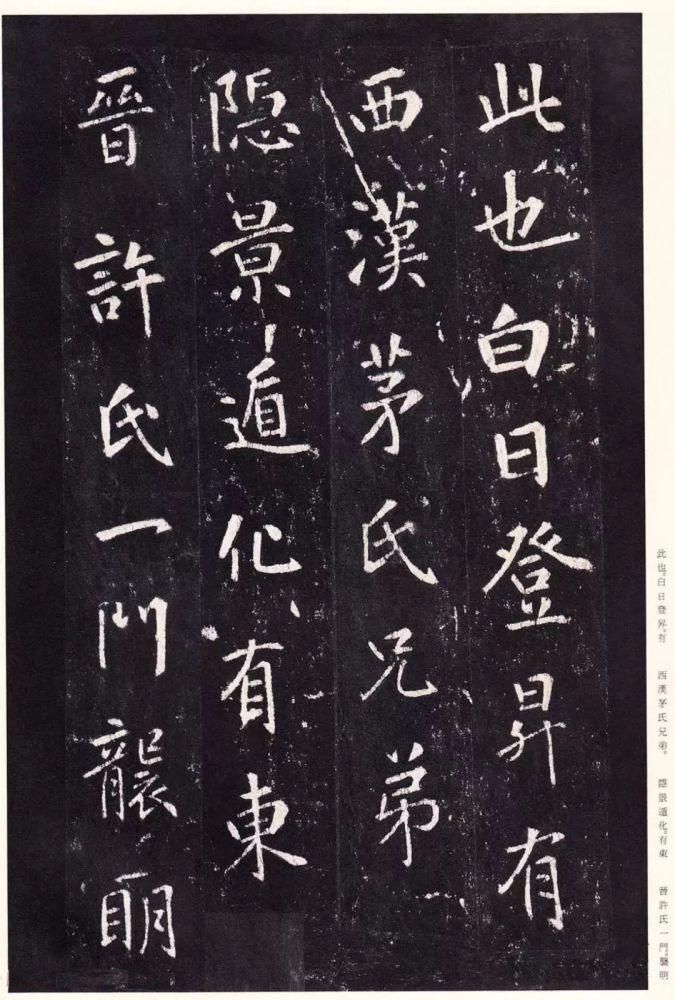 此也白日登昇有
西漢茅氏兄弟
隠景遁化有東
晉許氏一門襲明
此也。白日登昇。有　西漢茅氏兄弟。　隱景遁化。有東　晉許氏一門。襲明